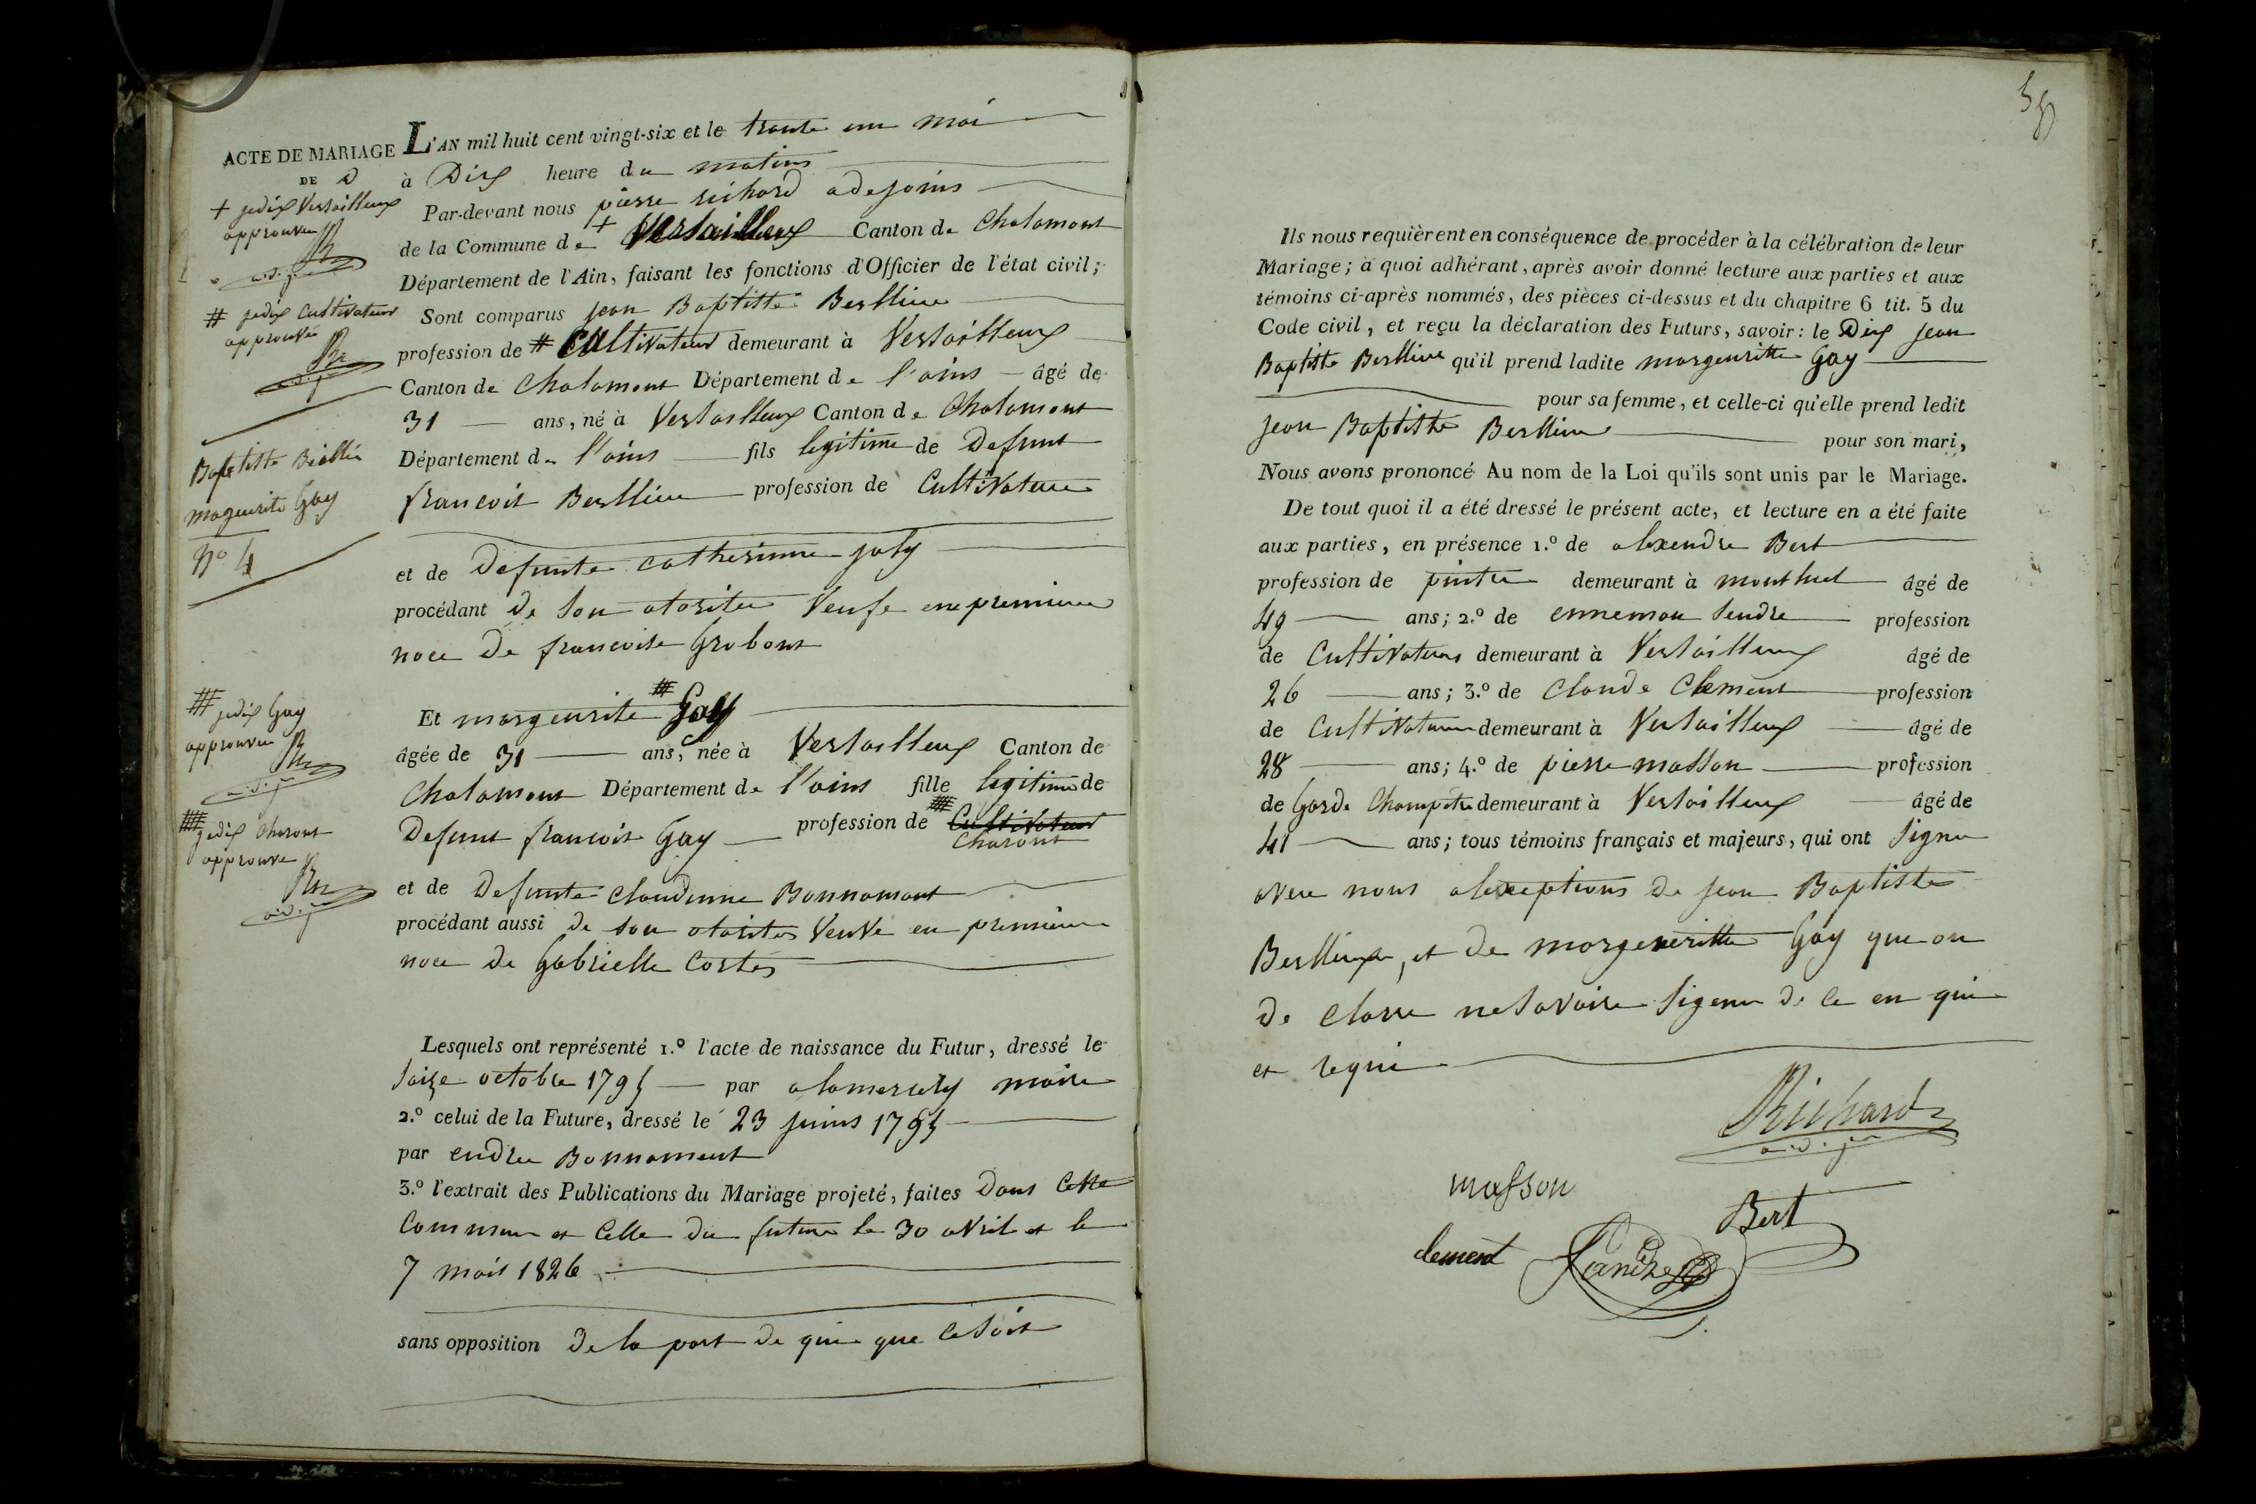 ACTE DE MARIAGE
DE D
+ jedix Versailleux
approuvee
adj
# jedix Cultivateur
approuvée
adj
Baptiste Berllié
marguerite Gay
No 4
### jedix Gay
approuvee
adj
#### jedix Charont
approuve
adj
L'AN mil huit cent vingt-six et le trante un mai
à Dix heure du matins
Par-devant nous pierre richard adejoins
de la Commune de + Versailleux Canton de Chalamont
Département de l'Ain, faisant les fonctions d'Officier de l'état civil;
Sont comparus jean Baptiste Berlliere
profession de # Cultivateur demeurant à Versailleux
Canton de Chalamont Département de l'ains âgé de
31 ans, né à Versailleux Canton de Chalamont
Département de l'ains fils legitime de Defunt
francoit Berlliere profession de Cultivateur
et de Defunte catherinne joly
procédant de son otorite Veufe en premiere
noce De francoise Grobont
Et margeurite ### Gay
âgée de 31 ans, née à Versailleux Canton de
Chalamont Département de l'ains fille legitime de
Defunt francoit Gay profession de #### Cultivateur
Charont
et de Defunte claudinne Bonnamout
procédant aussi de son otorites VeuVe en premiere
noce De Gabrielle Cortes
Lesquels ont représenté 1.º l'acte de naissance du Futur, dressé le
saize octobre 1795 par alamercery maire
2.º celui de la Future, dressé le 23 juins 1795
par endree Bonnament
3.º l'extrait des Publications du Mariage projeté, faites Dans Cette
Commune et Celle Du future le 30 aVril et le
7 mais 1826
sans opposition De la part de qui que ce soit
58
Ils nous requièrent en conséquence de procéder à la célébration de leur
Mariage; à quoi adhérant, après avoir donné lecture aux parties et aux
témoins ci-après nommés, des pièces ci-dessus et du chapitre 6 tit. 5 du
Code civil, et reçu la déclaration des Futurs, savoir: le Dix jean
Baptiste Berlliere qu'il prend ladite margeuritte Gay
pour sa femme, et celle-ci qu'elle prend ledit
jean Baptiste Berlliere pour son mari,
Nous avons prononcé Au nom de la Loi qu'ils sont unis par le Mariage.
De tout quoi il a été dressé le présent acte, et lecture en a été faite
aux parties, en présence 1.º de alexendre Bert
profession de pintre demeurant à montluel âgé de
49 ans; 2.º de ennemon sendre profession
de CultiVateurs demeurant à Versailleux âgé de
26 ans; 3.º de Claude Clement profession
de CultiVateur demeurant à Versailleux âgé de
28 ans; 4.º de pierre masson profession
de Garde Champêtre demeurant à Versailleux âgé de
41 ans; tous témoins français et majeurs, qui ont signe
avec nous alexeptions De jean Baptiste
Berlliere, et De margeueritte Gay que on
De clarre ne savoire sigener De ce en quie
et requi
Richard
adj
masson
Bert
clement